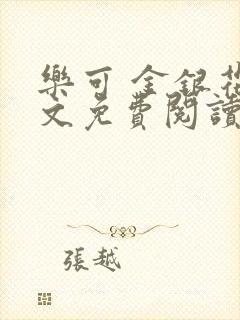 樂可 金銀花
文免費閱讀
張越